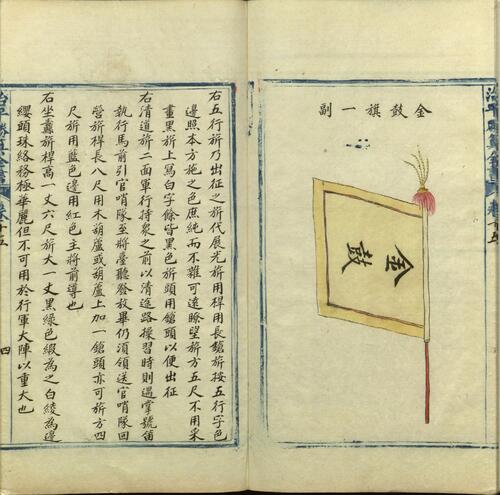 金鼓旗一副
金鼓
右五行旂乃出征之旂代展光旂用桿用長鎗旂按五行字色
邊照本方施之色庶純而不雜可遠瞭望旂方五尺不用采
畫黑旂上寫白字餘皆黑色旂頭用鎗頭以便出征
右清道旂二面軍行持衆之前以清迯路操習時則遇掌號笛
執行馬前引官哨隊至將臺聽發放畢仍須領送官哨隊回
營旂桿長八尺用木葫蘆或葫蘆上加一鎗頭亦可旂方四
尺旂用藍色邊用紅色主將前導也
右坐纛旂桿高一丈六尺旂大一丈黑綠色緞為之白綾為邊
纓頭珠絡務極華麗但不可用於行軍大陣以重大也
治平勝算全書
卷十五
四